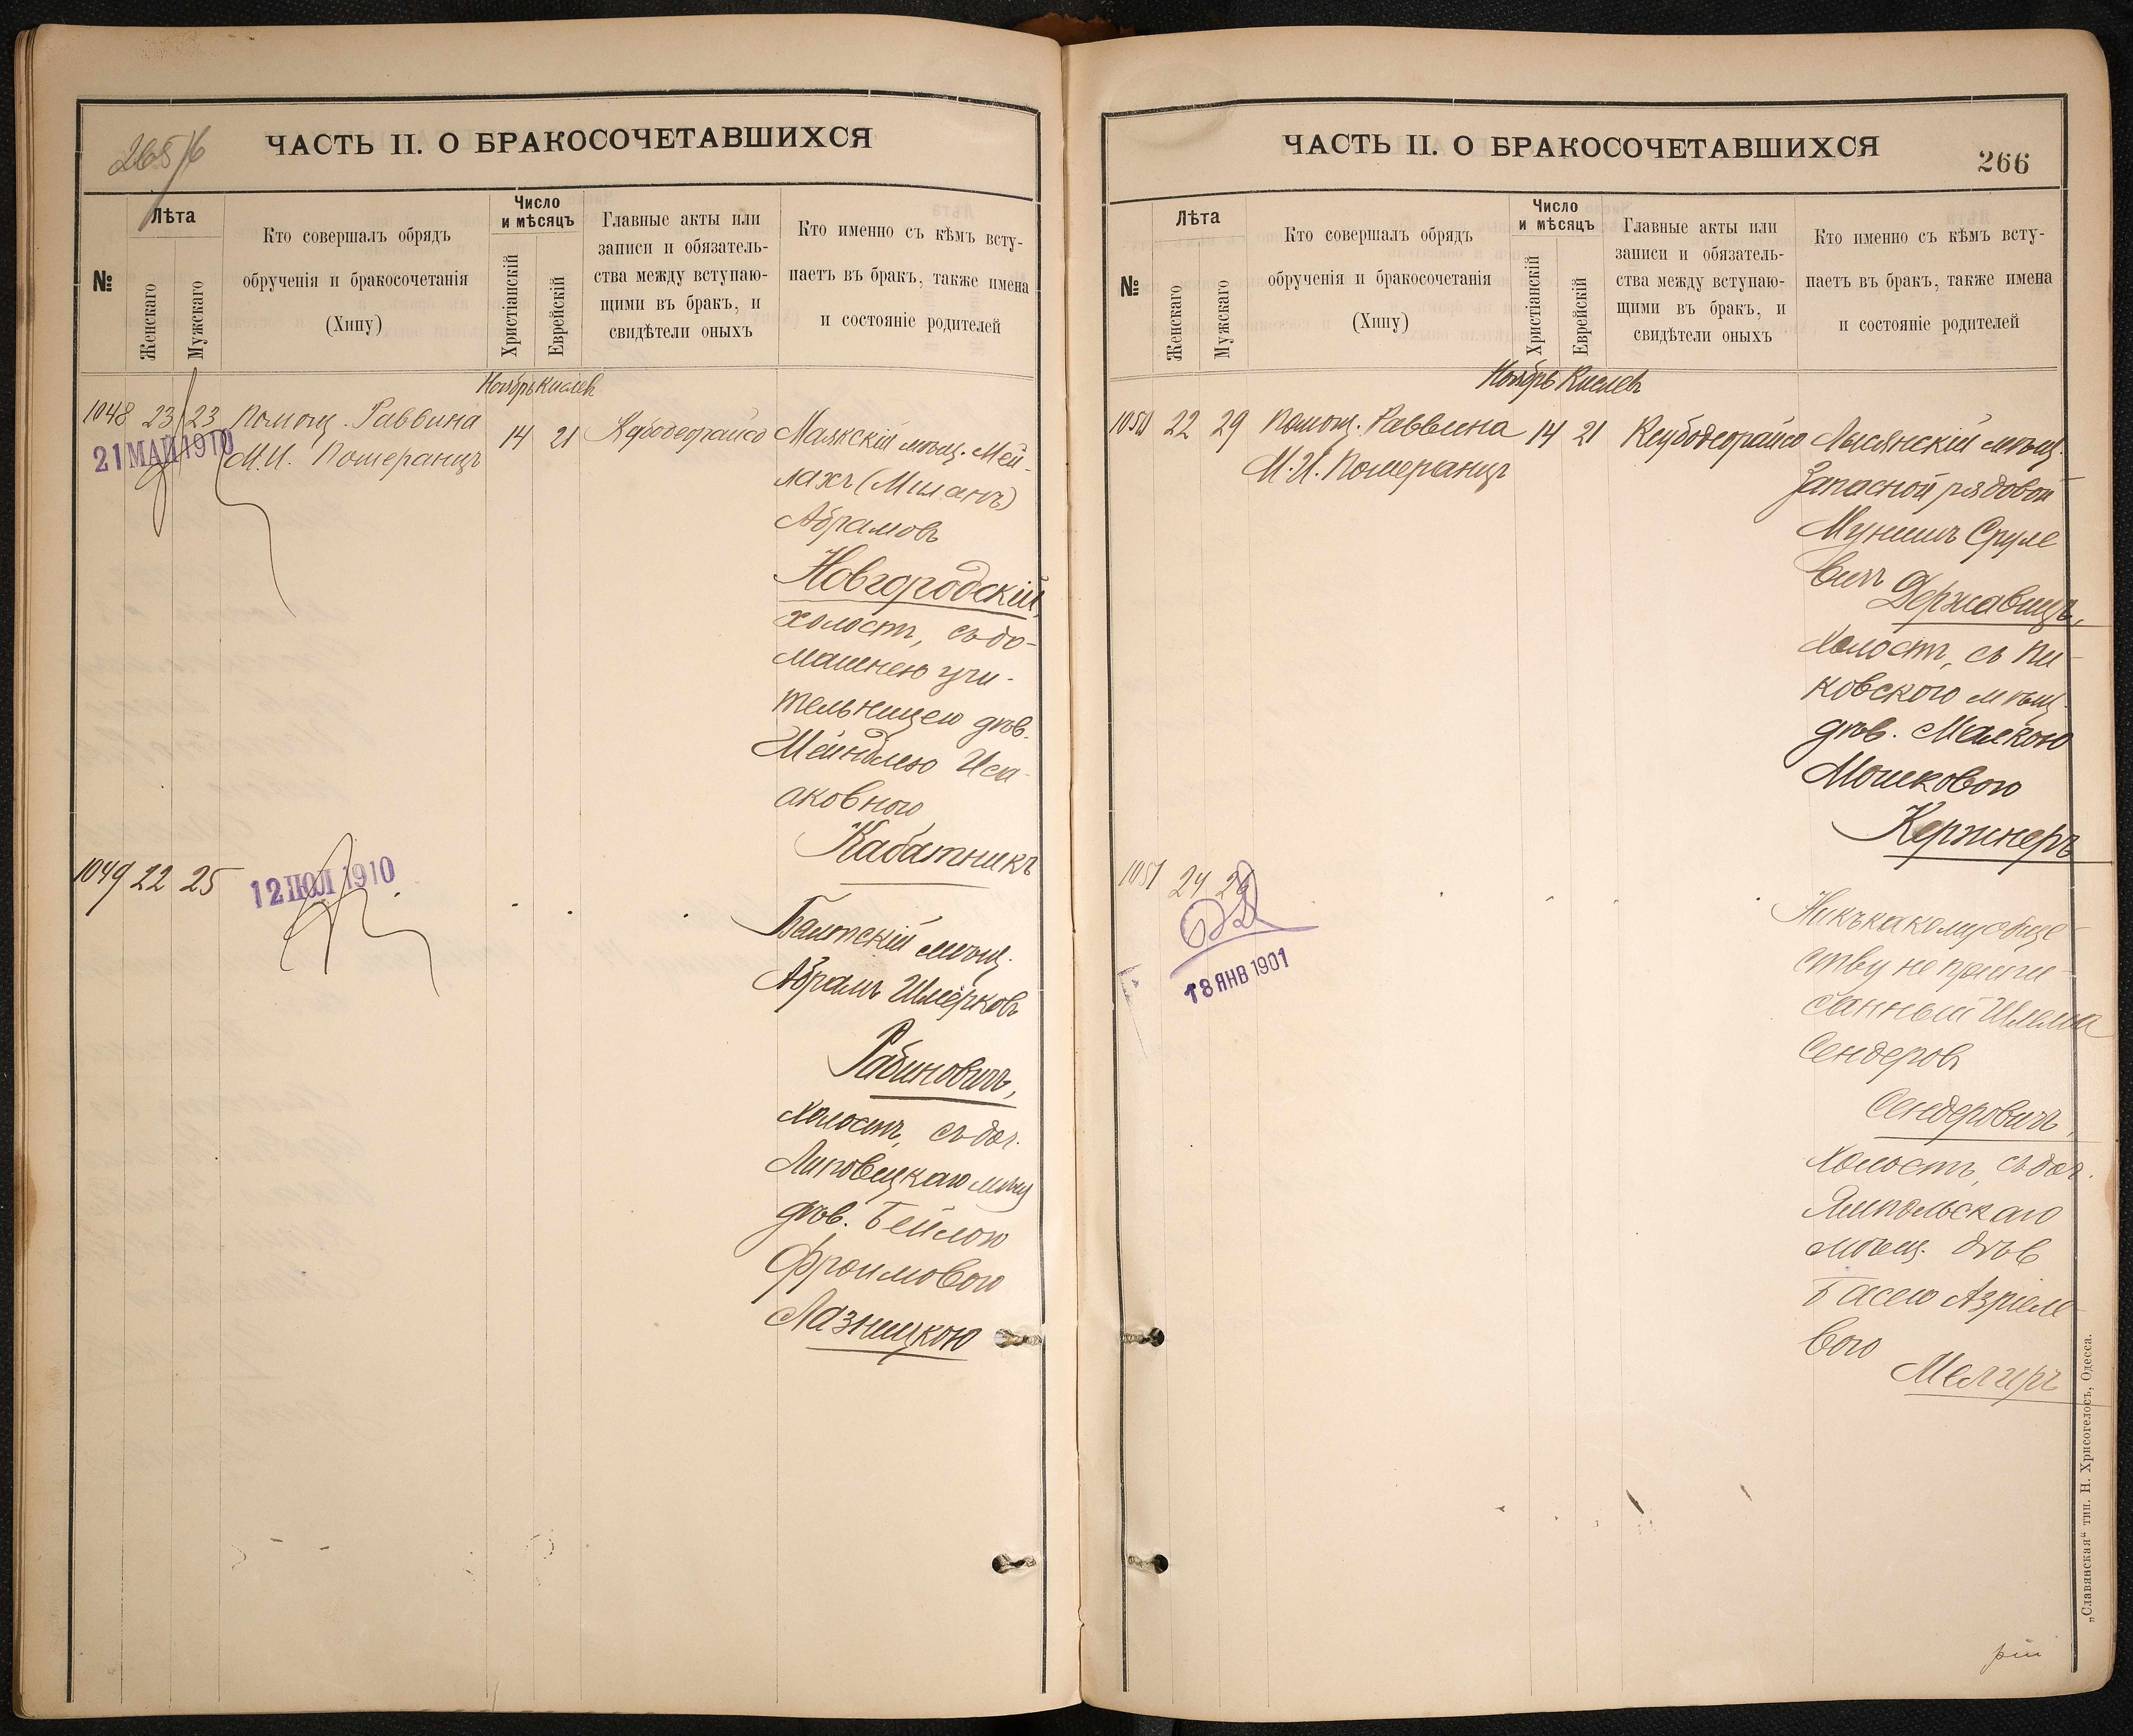 265/6
ЧАСТЬ II. О БРАКОСОЧЕТАВШИХСЯ
№
Лѣта
Женскаго
Мужскаго
Кто совершалъ обрядъ
обрученія и бракосочетанія
(Хипу)
Число
и мѣсяцъ
Христіанскій
Еврейскій
Главные акты или
записи и обязатель-
ства между вступаю-
щими въ бракъ, и
свидѣтели оныхъ
Кто именно съ кѣмъ всту-
паетъ въ бракъ, также имена
и состояніе родителей
Ноябрь Кислевъ
1048 23 23 Помощ. Раввина
М.И. Померанцъ
14 21 Кубодеорайсо
21 МАЙ 1910
Маякскій мѣщ. Мей-
лахъ (Миланъ)
Абрамовъ
Новгородскій,
холостъ, съ до-
машнею учи-
тельницею дѣв.
Шейндлею Иса-
аковною
Кабатникъ
1049 22 25
12 ІЮЛ 1910
Балтскій мѣщ.
Абрамъ Шмерковъ
Рабиновичъ,
холостъ, съ доч.
Липовецкаго мѣщ
дѣв. Бейлою
Фроимовою
Лазницкою
ЧАСТЬ II. О БРАКОСОЧЕТАВШИХСЯ
266
№
Лѣта
Женскаго
Мужскаго
Кто совершалъ обрядъ
обрученія и бракосочетанія
(Хипу)
Число
и мѣсяцъ
Христіанскій
Еврейскій
Главные акты или
записи и обязатель-
ства между вступаю-
щими въ бракъ, и
свидѣтели оныхъ
Кто именно съ кѣмъ всту-
паетъ въ бракъ, также имена
и состояніе родителей
Ноябрь Кислевъ
1050 22 29 Помощ. Раввина
М.И. Померанцъ
14 21 Кеубодеорайсо
Лысянскій мѣщ.
Запасной рядовой
Мунишъ Сруле
вичъ Державецъ,
холостъ, съ Пи-
ковского мѣщ.
дѣв. Малкою
Мошковою
Кержнеръ
1051 24 29
18 ЯНВ 1901
Ни къ какому обще-
ству не припи-
санный Шлема
Сендеровъ
Сендеровичъ,
холостъ, съ доч.
Ямпольскаго
мѣщ. дѣв
Басею Азріеле-
вою
Мелчеръ
„Славянская“ тип. Н. Хрисогелосъ, Одесса.